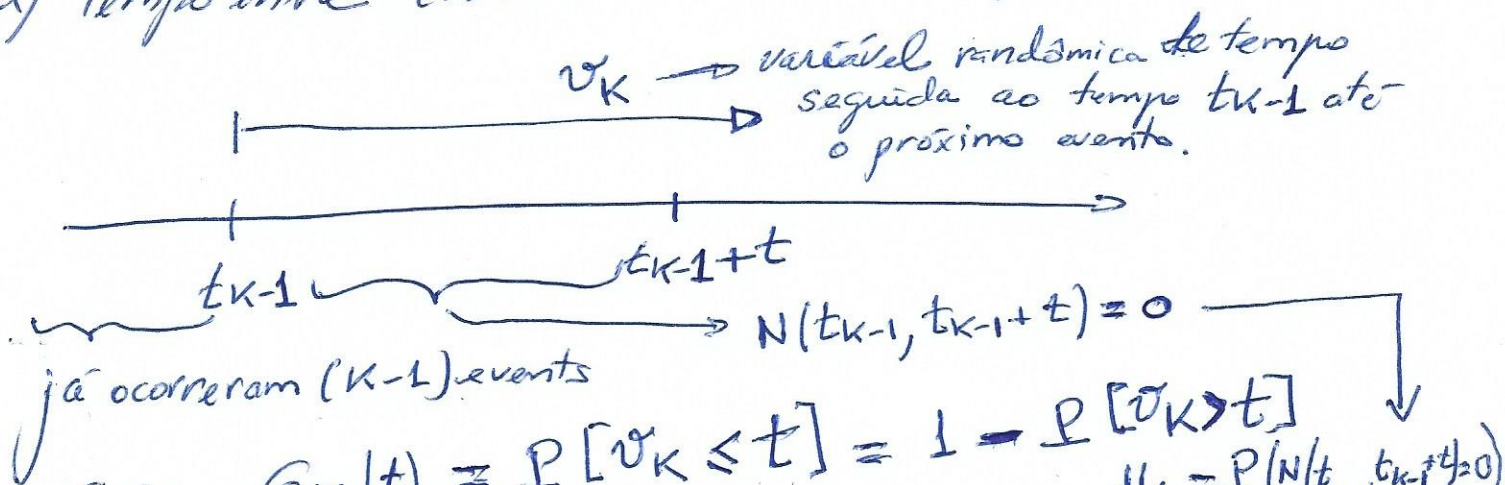 Tempo entre
v_K → variável randômica de tempo
seguida ao tempo t_K-1 até
o próximo evento.
t_K-1 t_K-1+t
N(t_K-1, t_K-1+t) = 0
já ocorreram (K-1) events
G (t) = P[v_K ≤ t] = 1 - P[v_K > t]
- P(N(t t_K-1+t)=0)